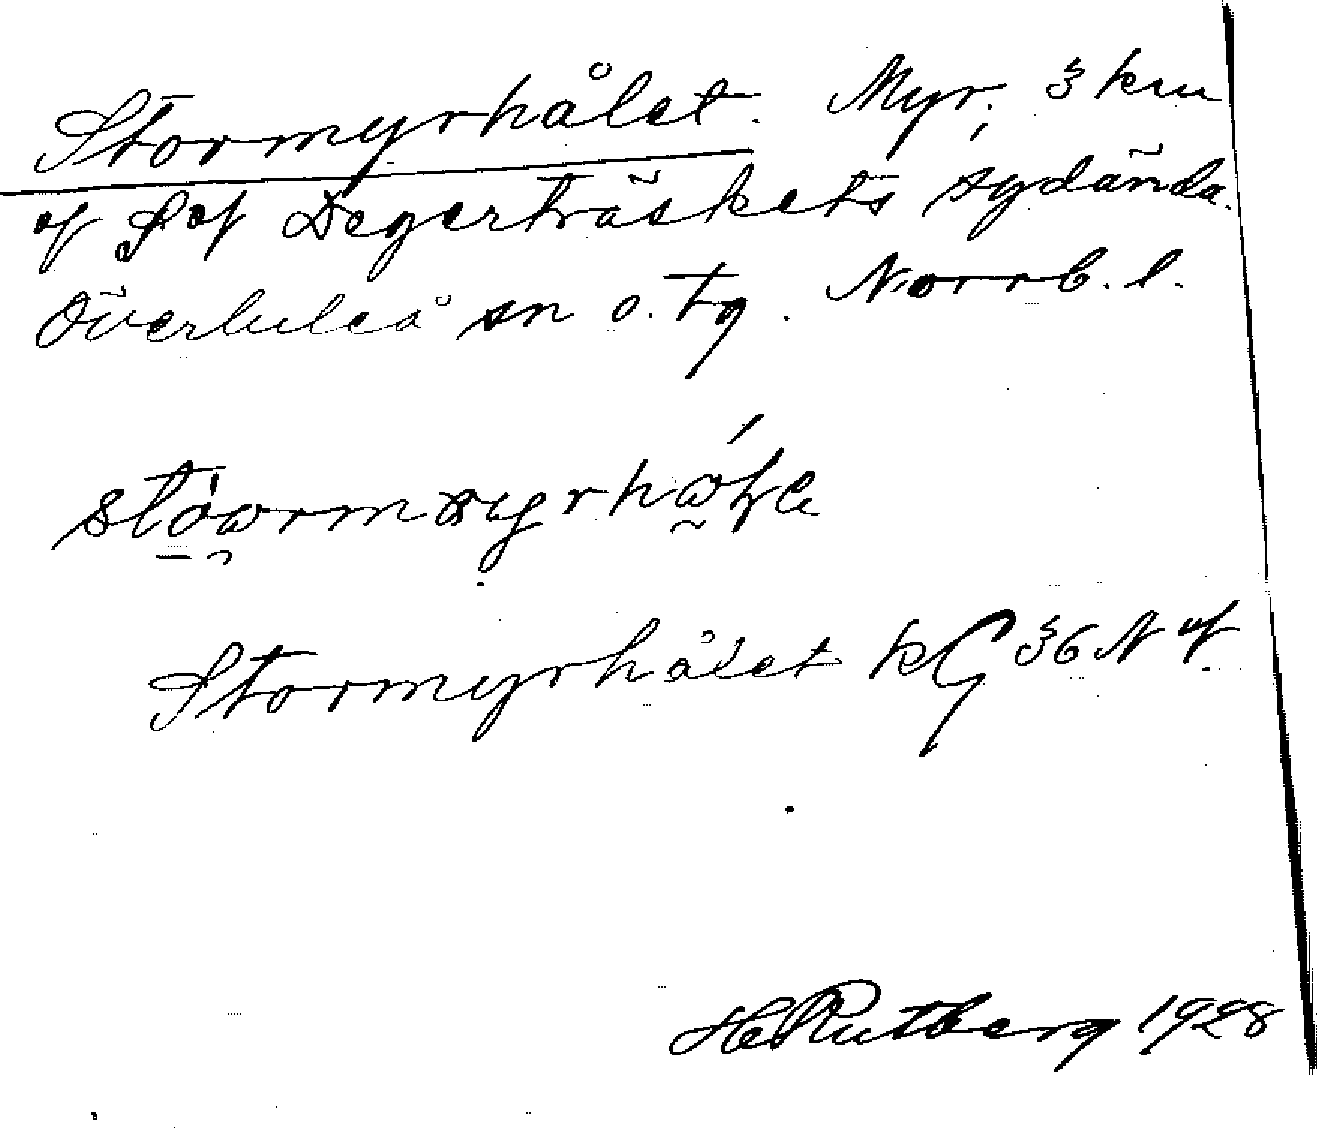 Stormyrhålet. Myr, 3 km
af S af Degerträskets sydända.
Överluleå sn o. tg. Norrb. l.
Stormyrhålet kG 36 N af.
H Rutberg 1928